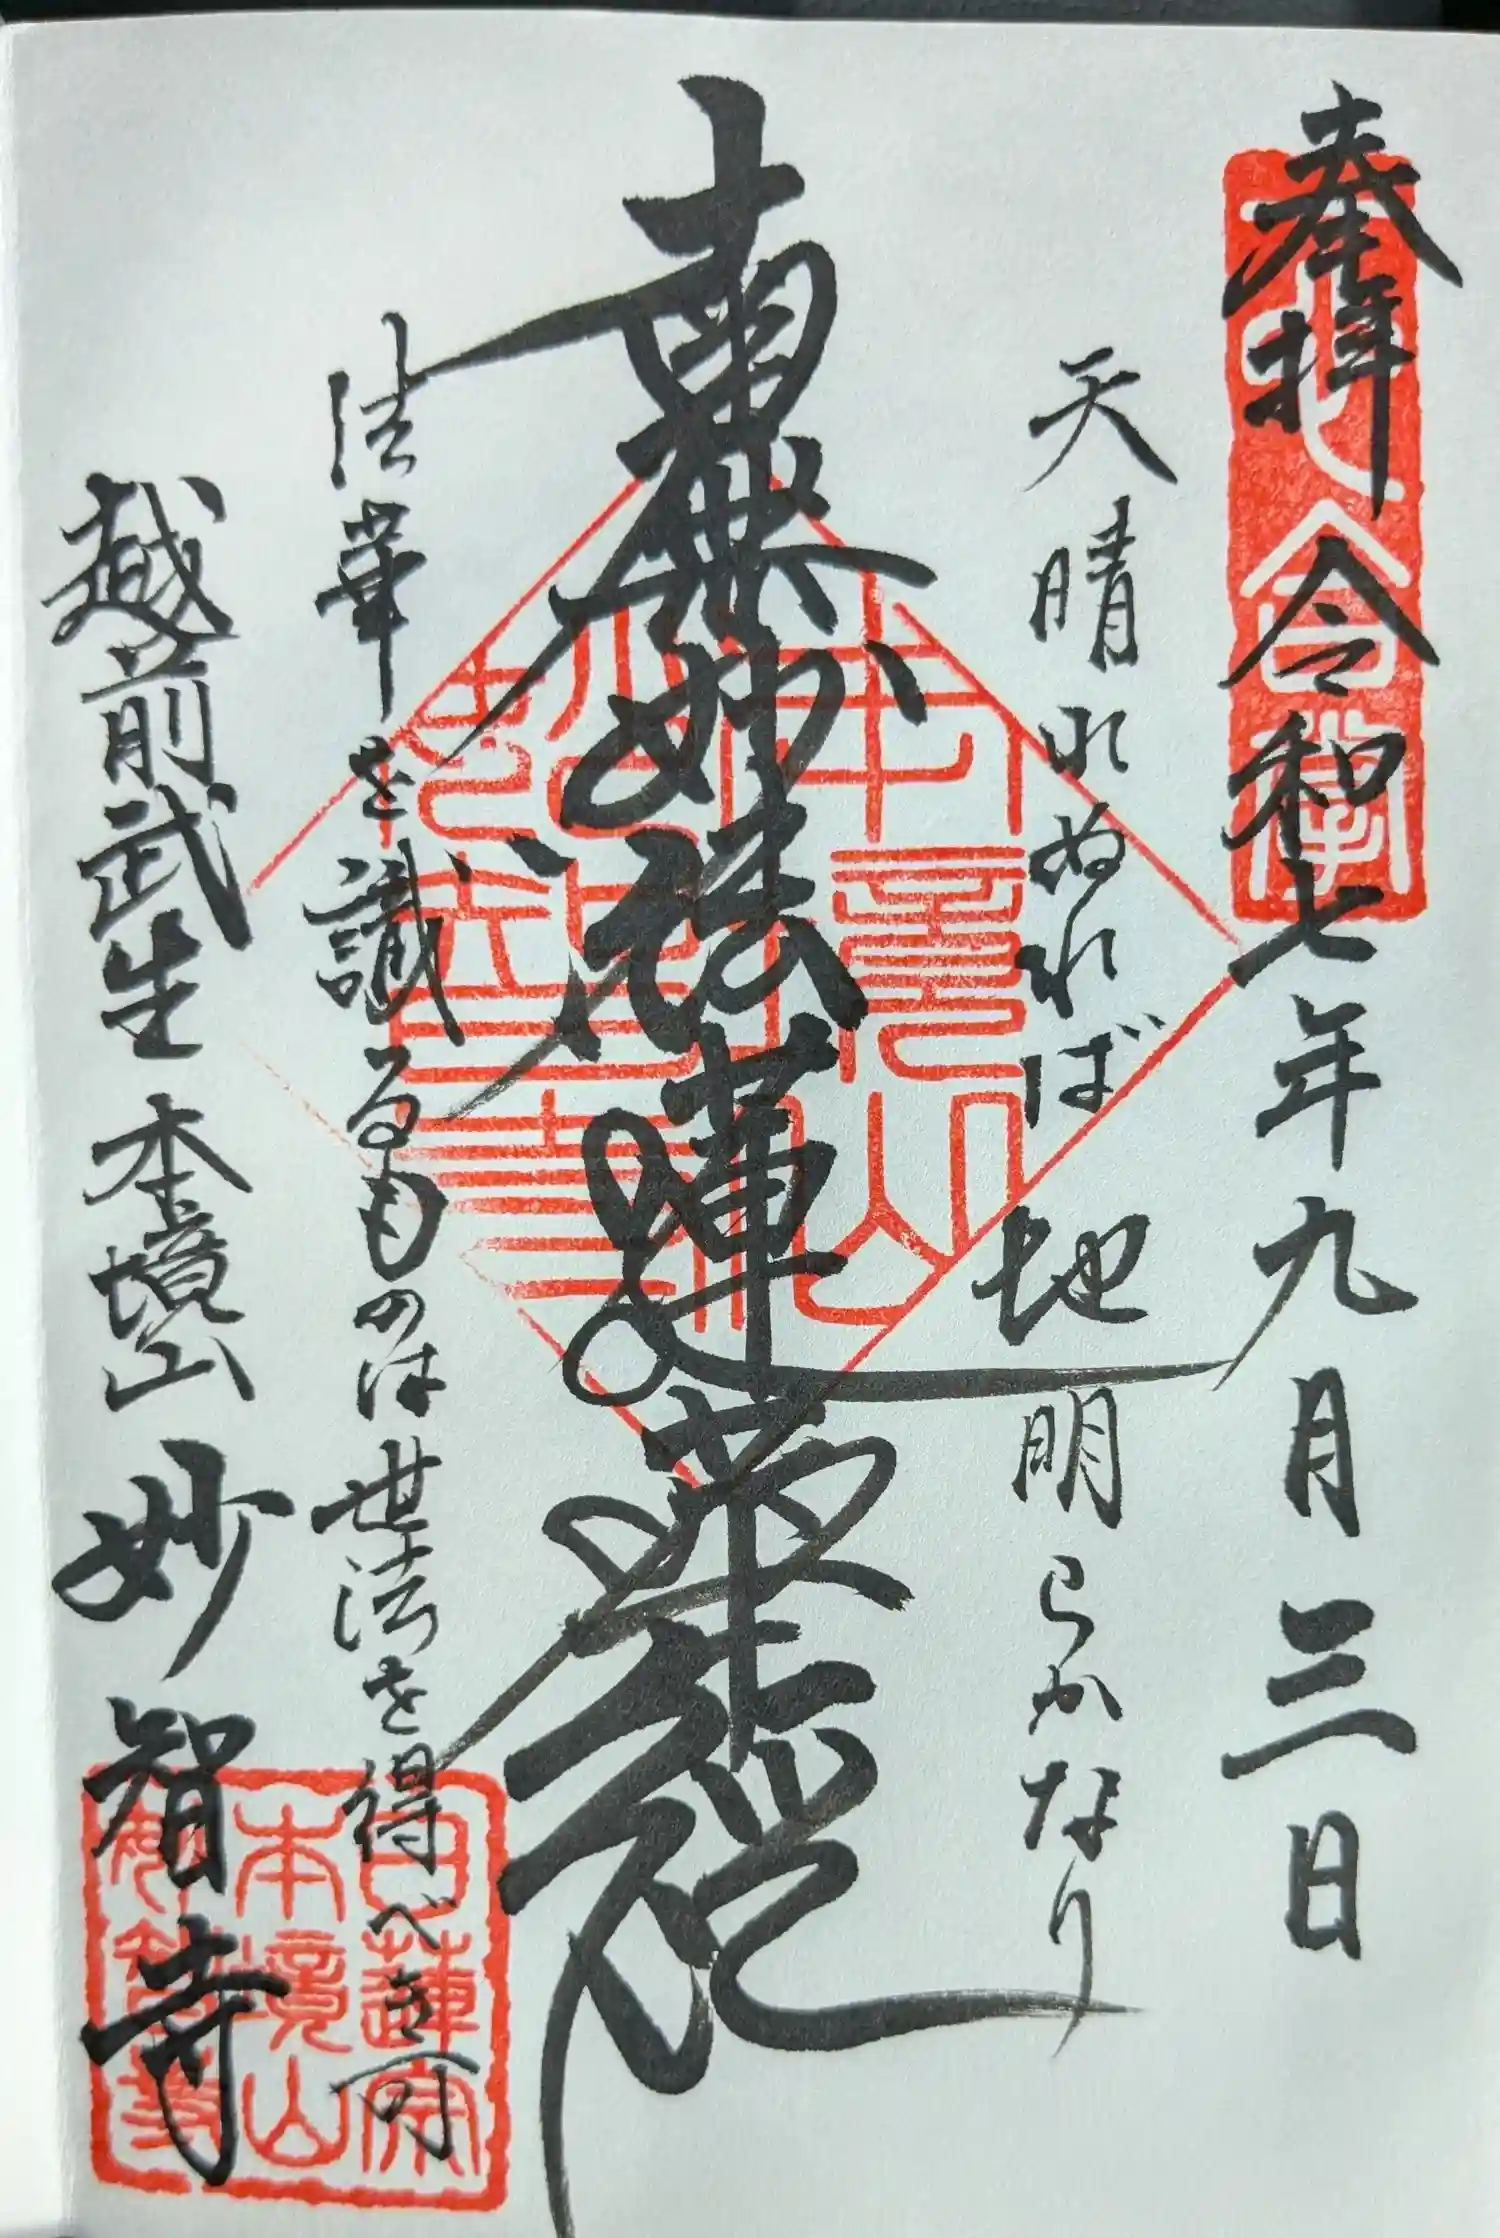 奉拝 令和七年九月三日
天晴れぬれば 地明らかなり
南無妙法蓮華経
法華を識るものは世法を得べき可
越前武生 本境山 妙智寺
合掌
本境山
妙智寺
日蓮宗
本境山
妙智寺